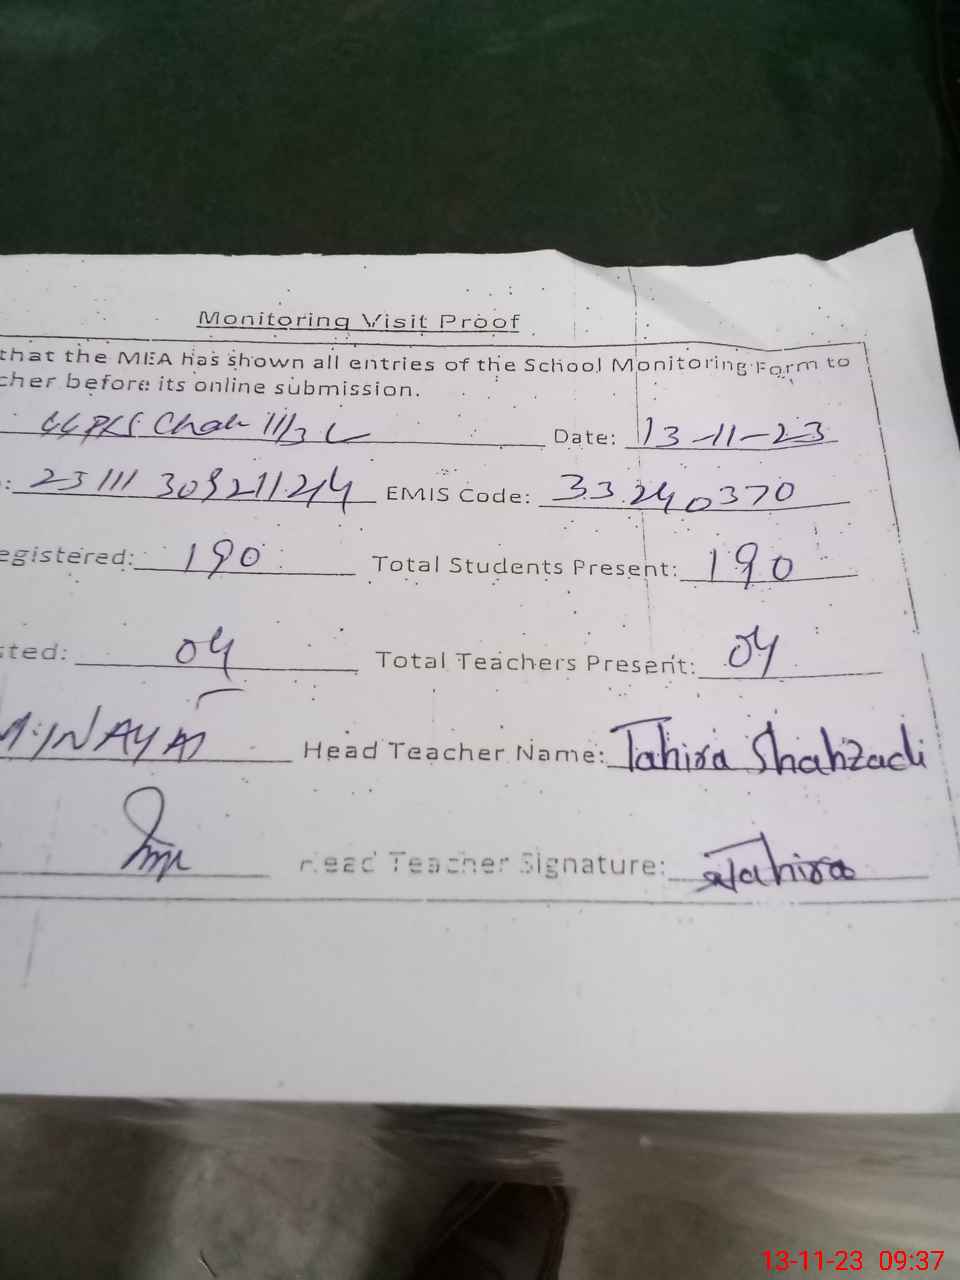 Monitoring Visit Proof
that the MEA has shown all entries of the School Monitoring Form to
cher before its online submission.
Chak 111/3 L Date: 13-11-23
: EMIS Code: 33240370
egistered: 190 Total Students Present: 190
sted: 04 Total Teachers Present: 04
INAYAT Head Teacher Name: Tahira Shahzadi
Head Teacher Signature: Tahira
13-11-23 09:37